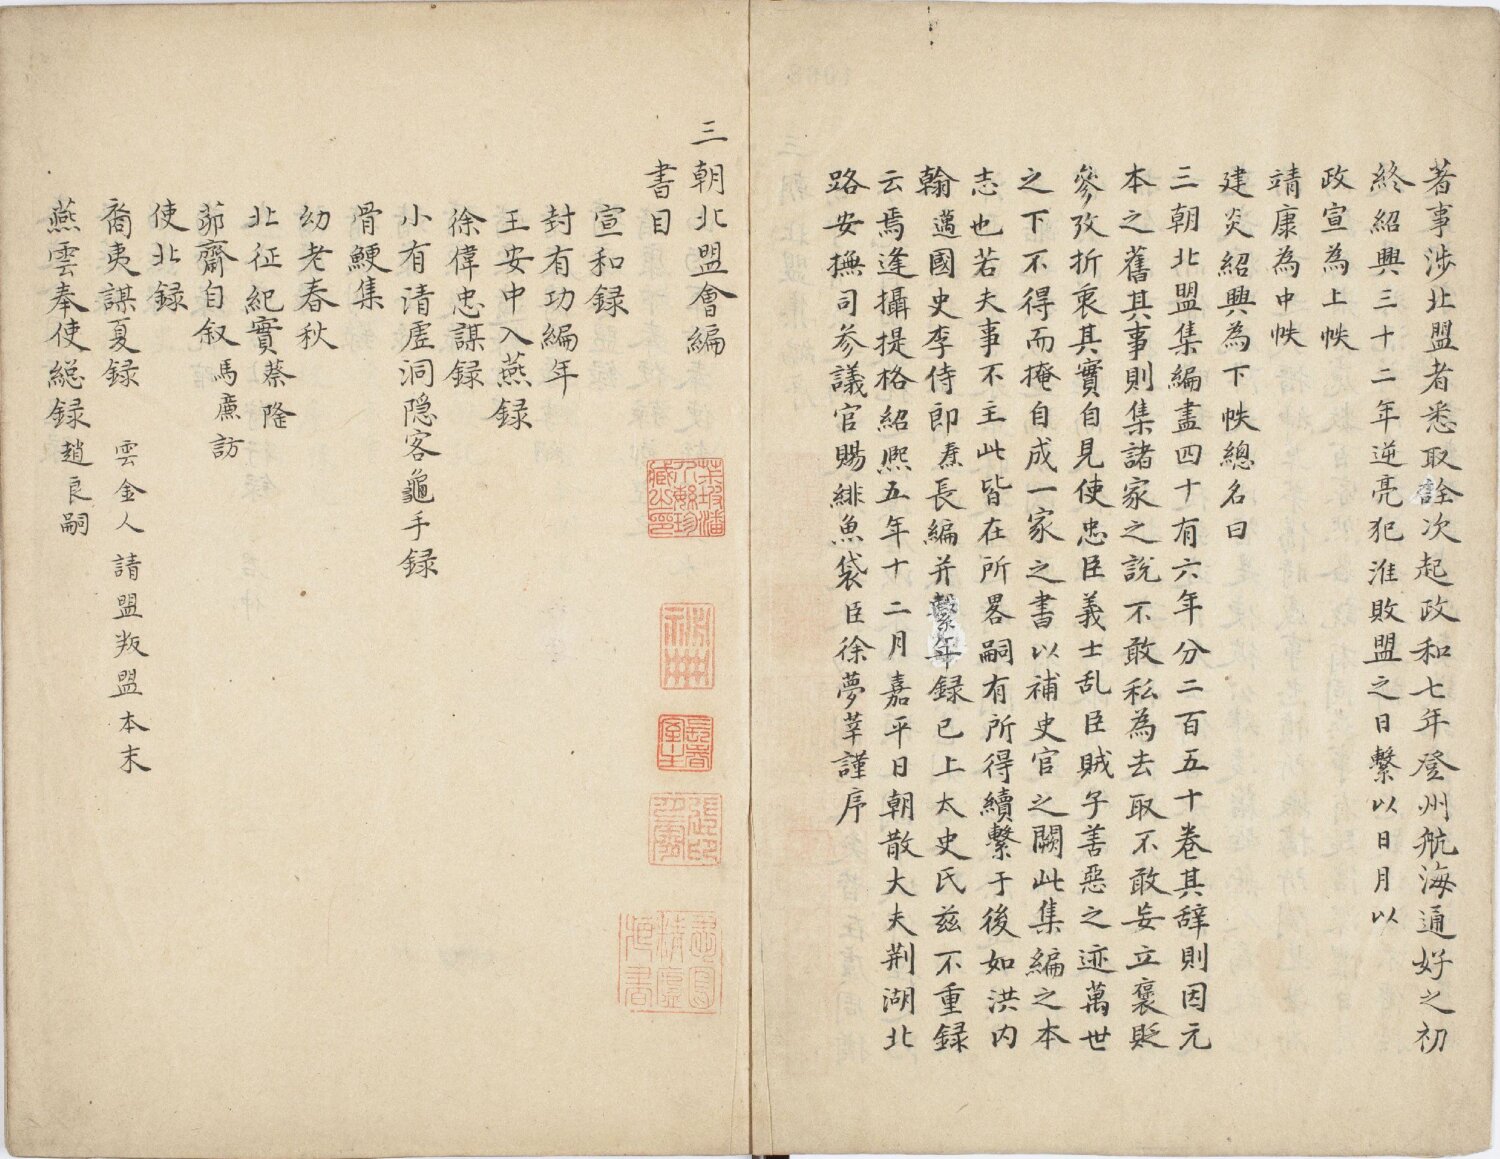 著事涉北盟者悉取詮次起政和七年登州航海通好之初
終紹興三十二年逆亮犯淮敗盟之日繫以日月以
政宣為上帙
靖康為中帙
建炎紹興為下帙總名曰
三朝北盟集編盡四十有六年分二百五十卷其辞則因元
本之舊其事則集諸家之說不敢私為去取不敢妄立褒貶
參攷折衷其實自見使忠臣義士乱臣賊子善惡之迹萬世
之下不得而掩自成一家之書以補史官之闕此集編之本
志也若夫事不主此皆在所畧嗣有所得續繫于後如洪内
翰邁國史李侍郎燾長編并繫年録已上太史氏兹不重録
云焉逢攝提格紹熈五年十二月嘉平日朝散大夫荆湖北
路安撫司参議官賜緋魚袋臣徐夢莘謹序
三朝北盟會編
書目
宣和録
封有功編年
王安中入燕録
徐偉忠謀録
小有清虗洞隐客龜手録
骨鯁集
幼老春秋
北征紀實蔡隆
茆齋自叙馬廣訪
使北録
裔夷謀夏録 雲金人請盟叛盟本末
燕雲奉使総録趙良嗣